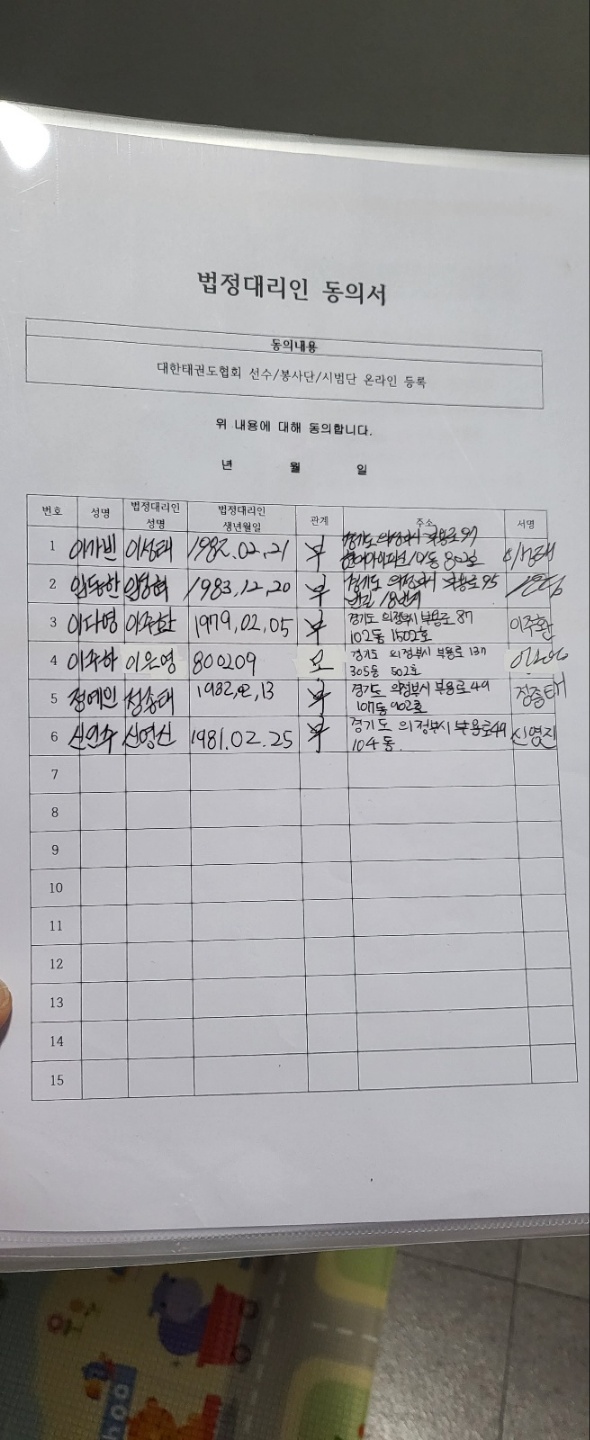 법정대리인 동의서
동의내용
대한태권도협회 선수/봉사단/시범단 온라인 등록
위 내용에 대해 동의합니다.
년 월 일
번호 성명 법정대리인 성명 법정대리인 생년월일 관계 주소 서명
1 이가빈 이성태 1982.02.21 부 경기도 의정부시 부용로 97
2 1983.12.20 부 경기도 의정부시 부용로 95
3 이다영 이주환 1979.02.05 부 경기도 의정부시 부용로 87 이주환
102동 1502호
4 이주하 이은영 800209 모 경기도 의정부시 부용로 137
305동 502호
5 정예인 정종태 부 경기도 의정부시 부용로 49 정종태
107동 902호
6 1981.02.25 부 경기도 의정부시 부용로49
104동
7
8
9
10
11
12
13
14
15